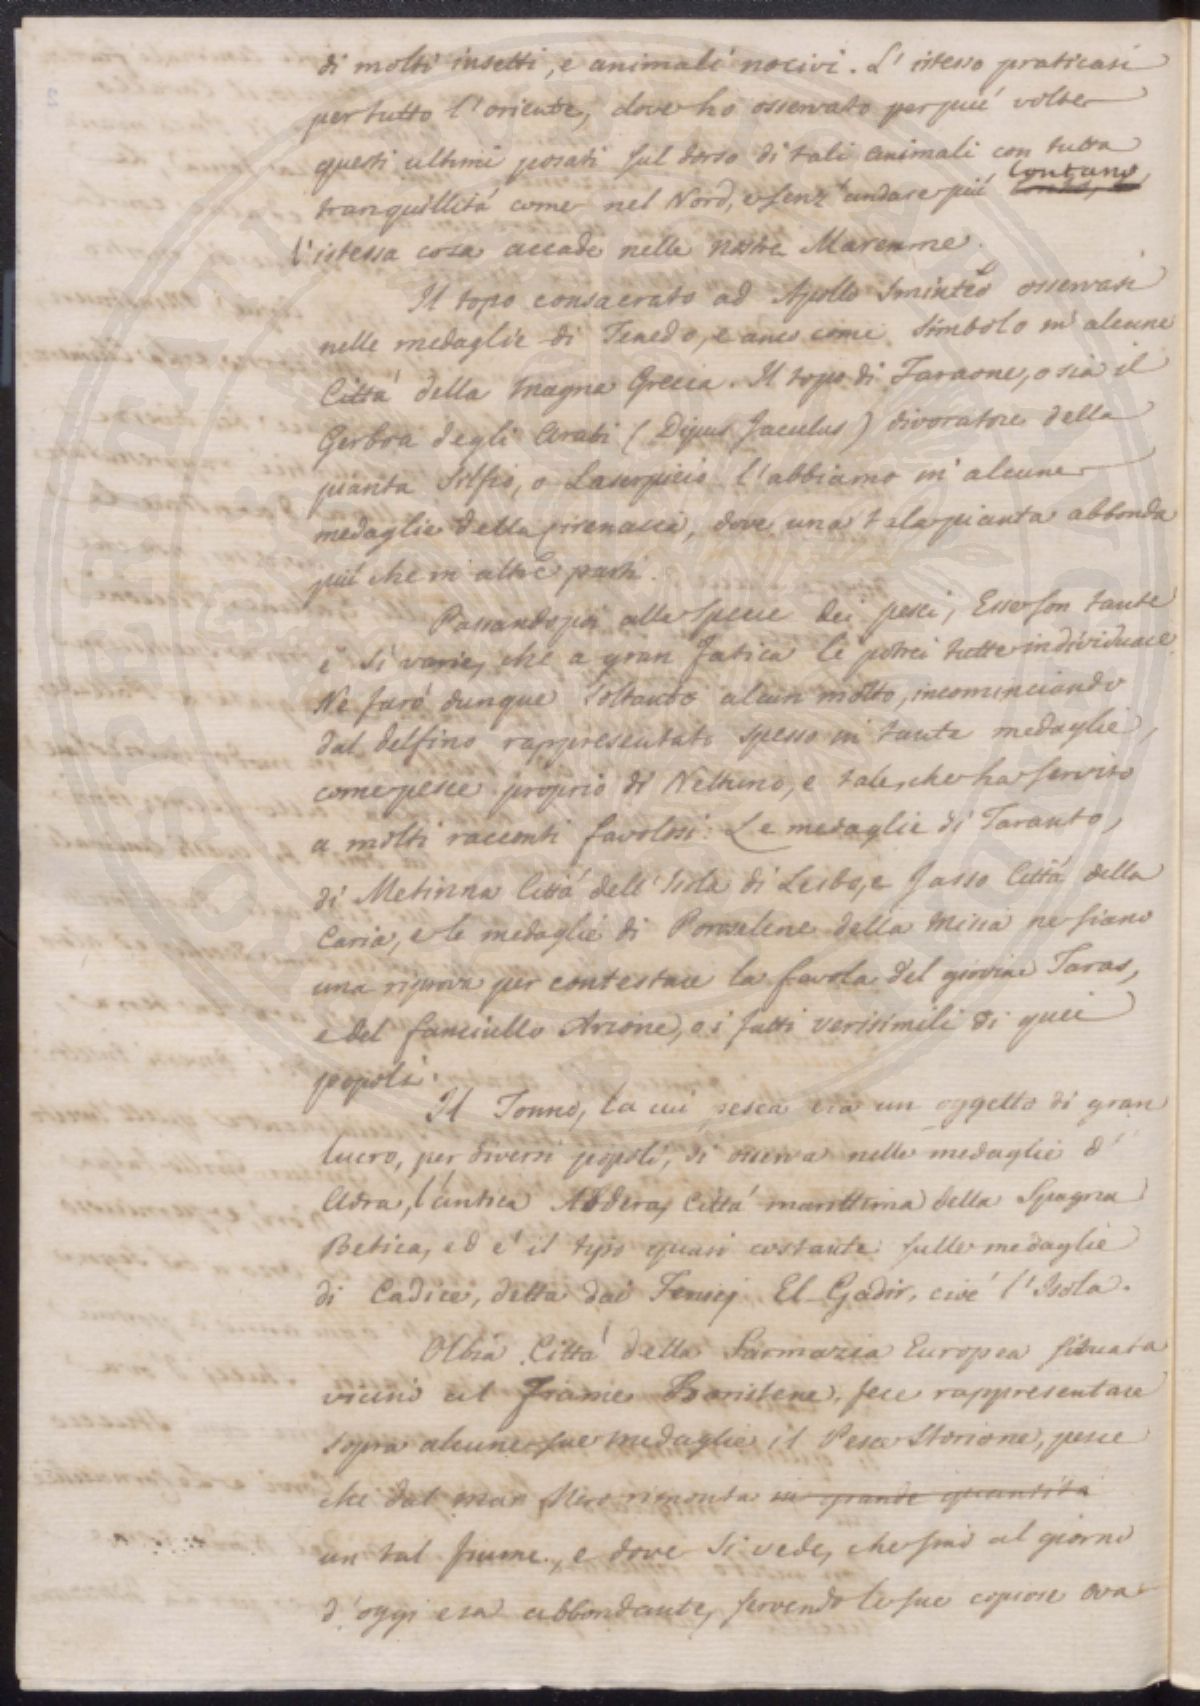 di molti insetti, e animali nocivi. L' istesso praticasi
per tutto l' oriente, dove ho osservato per più volte
questi ultimi posati sul dorso di tali animali con tutta
tranquillità come nel Nord, e senz' andare più lontano,
l' istessa cosa accade nelle nostre Maremme.
Il topo consacrato ad Apollo Sminteo osservasi
nelle medaglie di Tenedo, e anco come simbolo in alcune
Città della Magna Grecia. Il topo di Faraone, o sia il
Gerboa degli Arabi (Dipus Jaculus) divoratore della
pianta Silfio, o Laserpicio l' abbiamo in alcune
medaglie della Cirenaica, dove una tal pianta abbonda
più che in altre parti.
Passando poi alla specie dei pesci, Esse son tante
e sì varie, che a gran fatica le potrei tutte individuare
Ne farò dunque soltanto alcun motto, incominciando
dal delfino rappresentato spesso in tante medaglie,
come pesce proprio di Nettuno, e tale, che ha servito
a molti racconti favolosi: Le medaglie di Taranto,
di Metinna Città dell' Isola di Lesbo, e Jasso Città della
Caria, e le medaglie di Poroselene della Misia ne siano
una riprova per contestare la favola del giovine Taras,
e del fanciullo Arione, o i fatti verisimili di quei
popoli.
Il Tonno, la cui pesca era un oggetto di gran
lucro, per diversi popoli, si osserva nelle medaglie d'
Adra, l'antica Abdera, Città marittima della Spagna
Betica, ed e' il tipo quasi costante sulle medaglie
di Cadice, detta dai Fenicj El-Gadir, cioè l' Isola.
Olbia Città della Sarmazia Europea situata
vicino al Fiume Boristene, fece rappresentare
sopra alcune sue medaglie il Pesce Storione, pesce
che dal mar Nero rimonta in grande quantità
un tal fiume, e dove si vede, che sino al giorno
d' oggi era abbondante, servendo le sue copiose ova